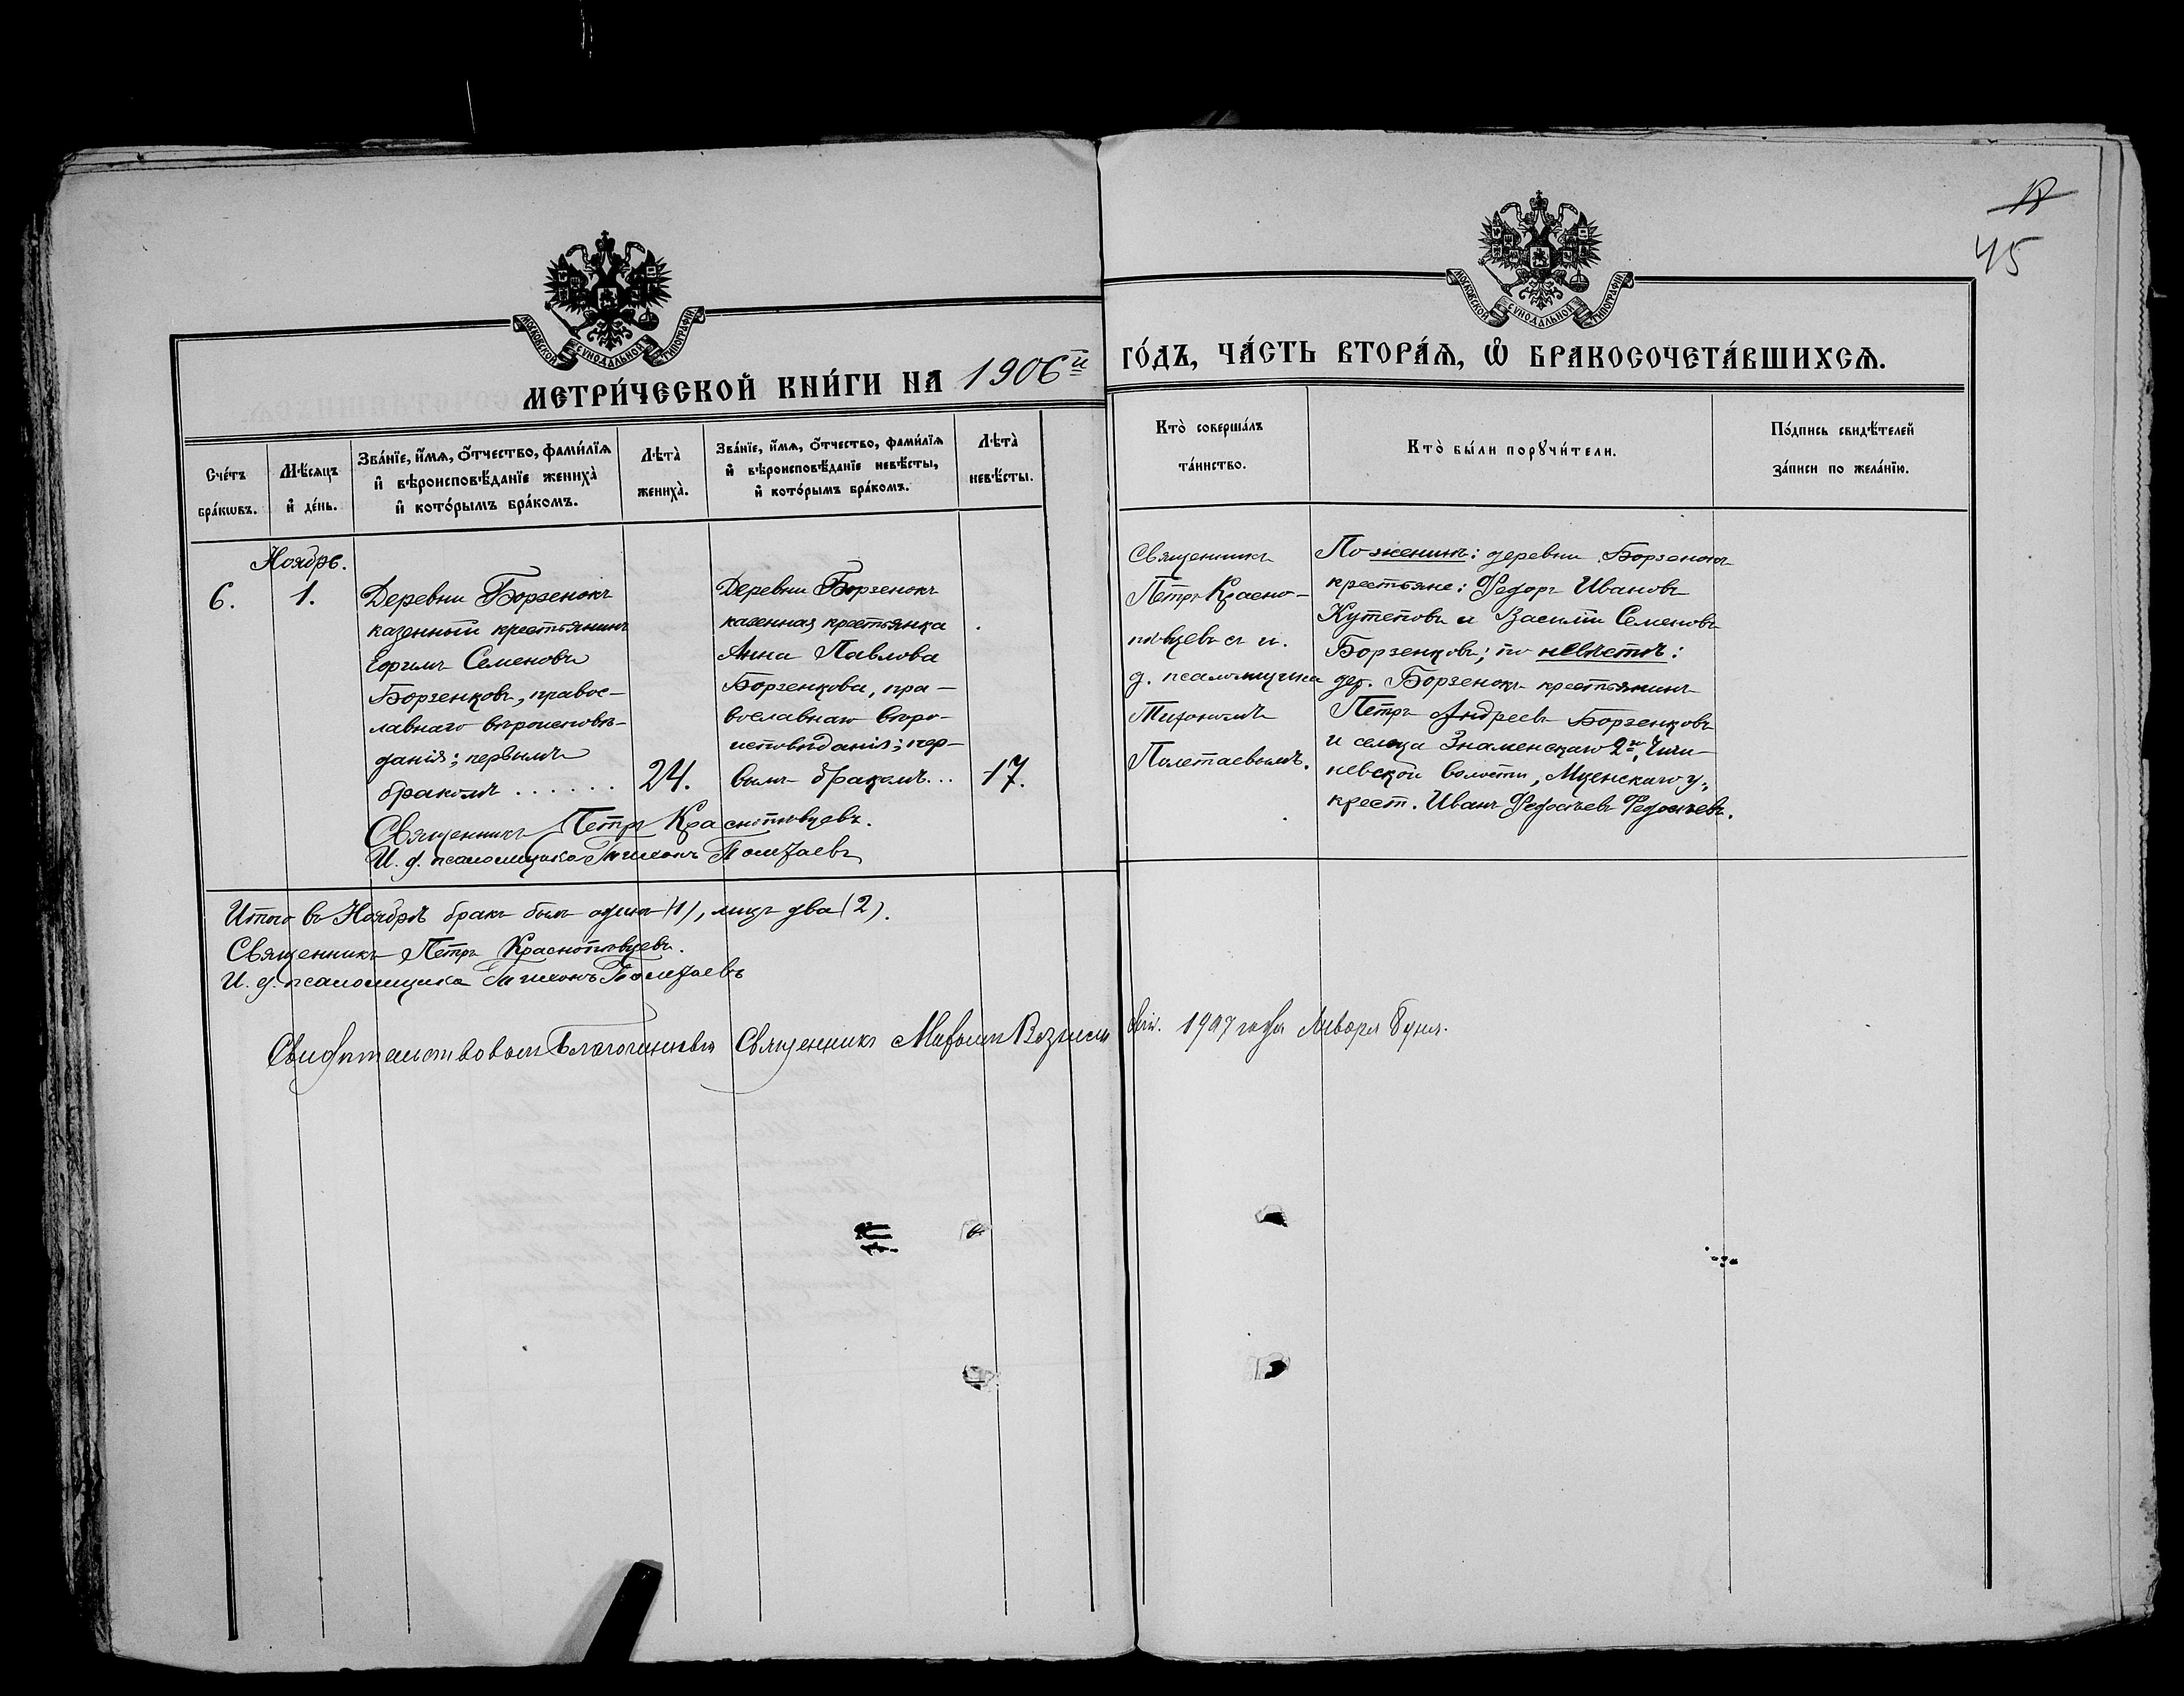 18
45
МОСКОВСКОЙ СѴНОДАЛЬНОЙ ТИПОГРАФІИ
МОСКОВСКОЙ СѴНОДАЛЬНОЙ ТИПОГРАФІИ
МЕТРИ́ЧЕСКОЙ КНИ́ГИ НА 1906й ГО́ДЪ, ЧА́СТЬ ВТОРА́Ѧ, Ѽ БРАКОСОЧЕТА́ВШИХСѦ.
Сче́тъ
бра́кѡвъ.
Мѣ́сѧцъ
и҆ де́нь.
Зва́нїе, и҆́мѧ, ѻ҆́тчество, фами́лїѧ
и҆ вѣроисповѣ́данїе жениха̀
и҆ кото́рымъ бра́комъ.
Лѣта̀
жениха̀.
Зва́нїе, и҆́мѧ, ѻ҆́тчество, фами́лїѧ
и҆ вѣроисповѣ́данїе невѣ́сты,
и҆ кото́рымъ бра́комъ.
Лѣта̀
невѣ́сты.
Кто̀ соверша́лъ
та́инство.
Кто̀ бы́ли порꙋчи́тели.
По́дпись свидѣ́телей
за́писи по жела́нїю.
Ноябрь.
6.
1.
Деревни Борзенокъ
казенный крестьянинъ
Ефримъ Семеновъ
Борзенковъ, правос-
лавнаго вѣроисповѣ-
данія; первымъ
бракомъ . . . . . .
24.
Деревни Борзенокъ
казенная крестьянка
Анна Павлова
Борзенкова, пра-
вославнаго вѣро-
исповѣданія; пер-
вымъ бракомъ...
17.
Священникъ
Петръ Красно-
пѣвцевъ съ и.
д. псаломщика
Тихономъ
Полетаевымъ.
По женихѣ: деревни Борзенокъ
крестьяне: Федоръ Ивановъ
Кутеповъ и Василій Семеновъ
Борзенковъ; по невѣстѣ:
дер. Борзенокъ крестьянинъ
Петръ Андреевъ Борзенковъ
и сельца Знаменскаго 2й,
невской волости, Мценскаго у.,
крест. Иванъ Федосѣевъ Федосѣевъ.
Священникъ Петръ Краснопѣвцевъ.
И. д. псаломщика Тихонъ Полетаевъ
Итого въ Ноябрѣ бракъ былъ одинъ (1), лицъ два (2).
Священникъ Петръ Краснопѣвцевъ.
И. д. псаломщика Тихонъ Полетаевъ
Свидѣтельствовалъ Благочинный Священникъ 1907 года Января 8 дня.